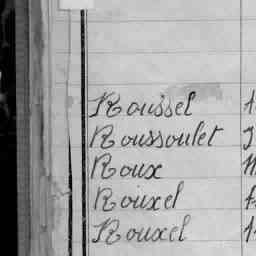 Roussel
Roussoulet
Roux
Rouxel
Rouxel